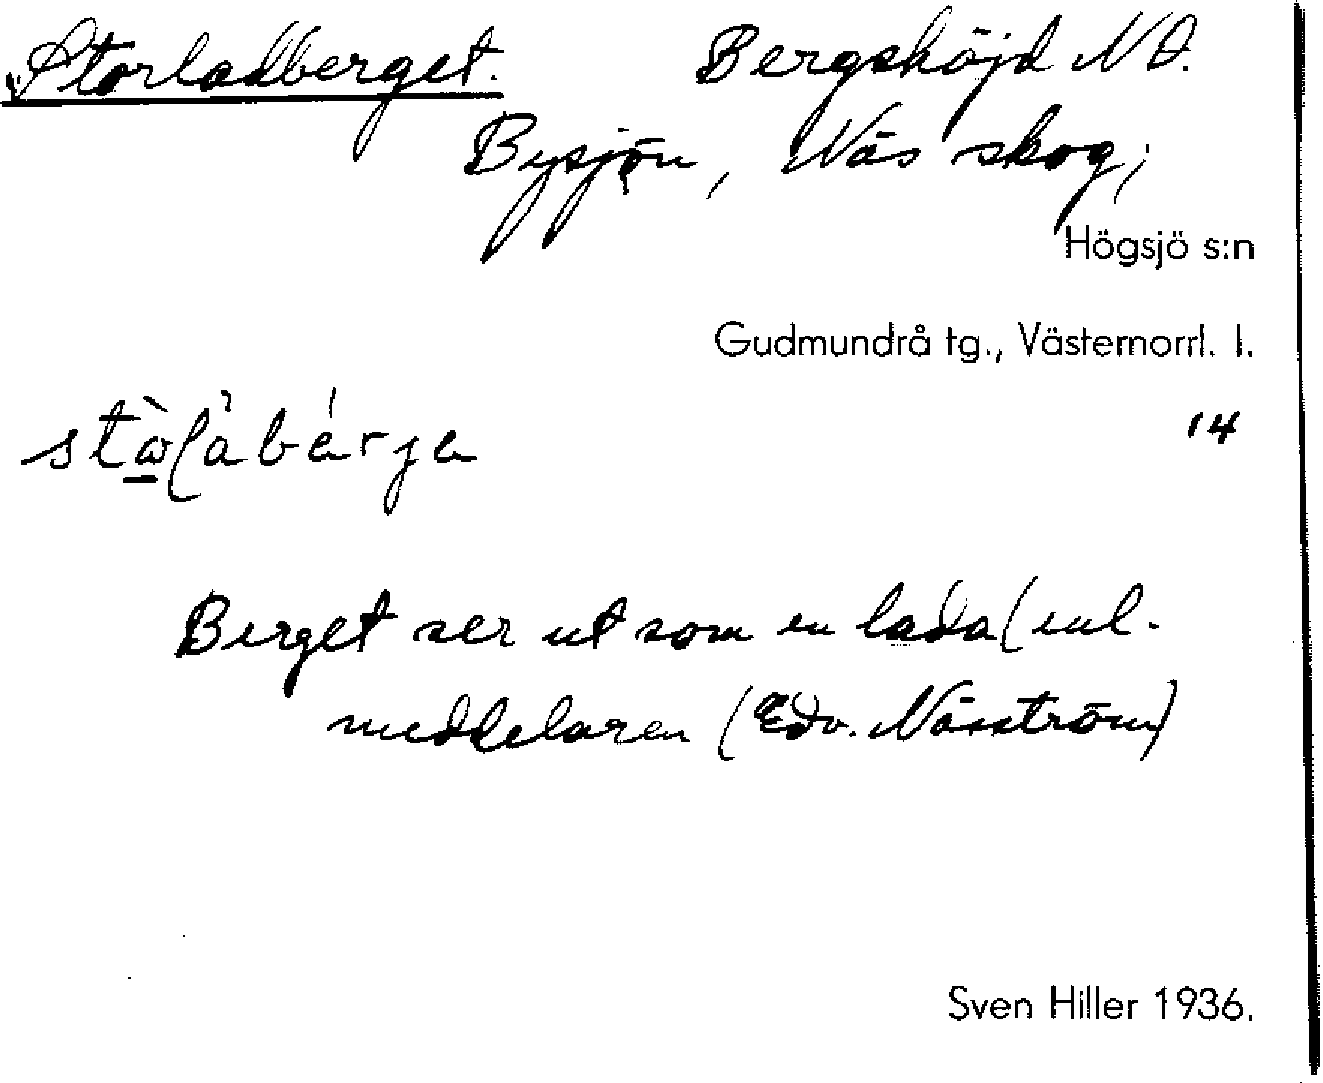 Storladberget. Bergshöjd NO.
Bysjön, Näs skog;
Högsjö s:n
Gudmundrå tg., Västernorrl. l.
14
Berget ser ut som en lada (enl.
meddelaren (Edv. Näsström)
Sven Hiller 1936.